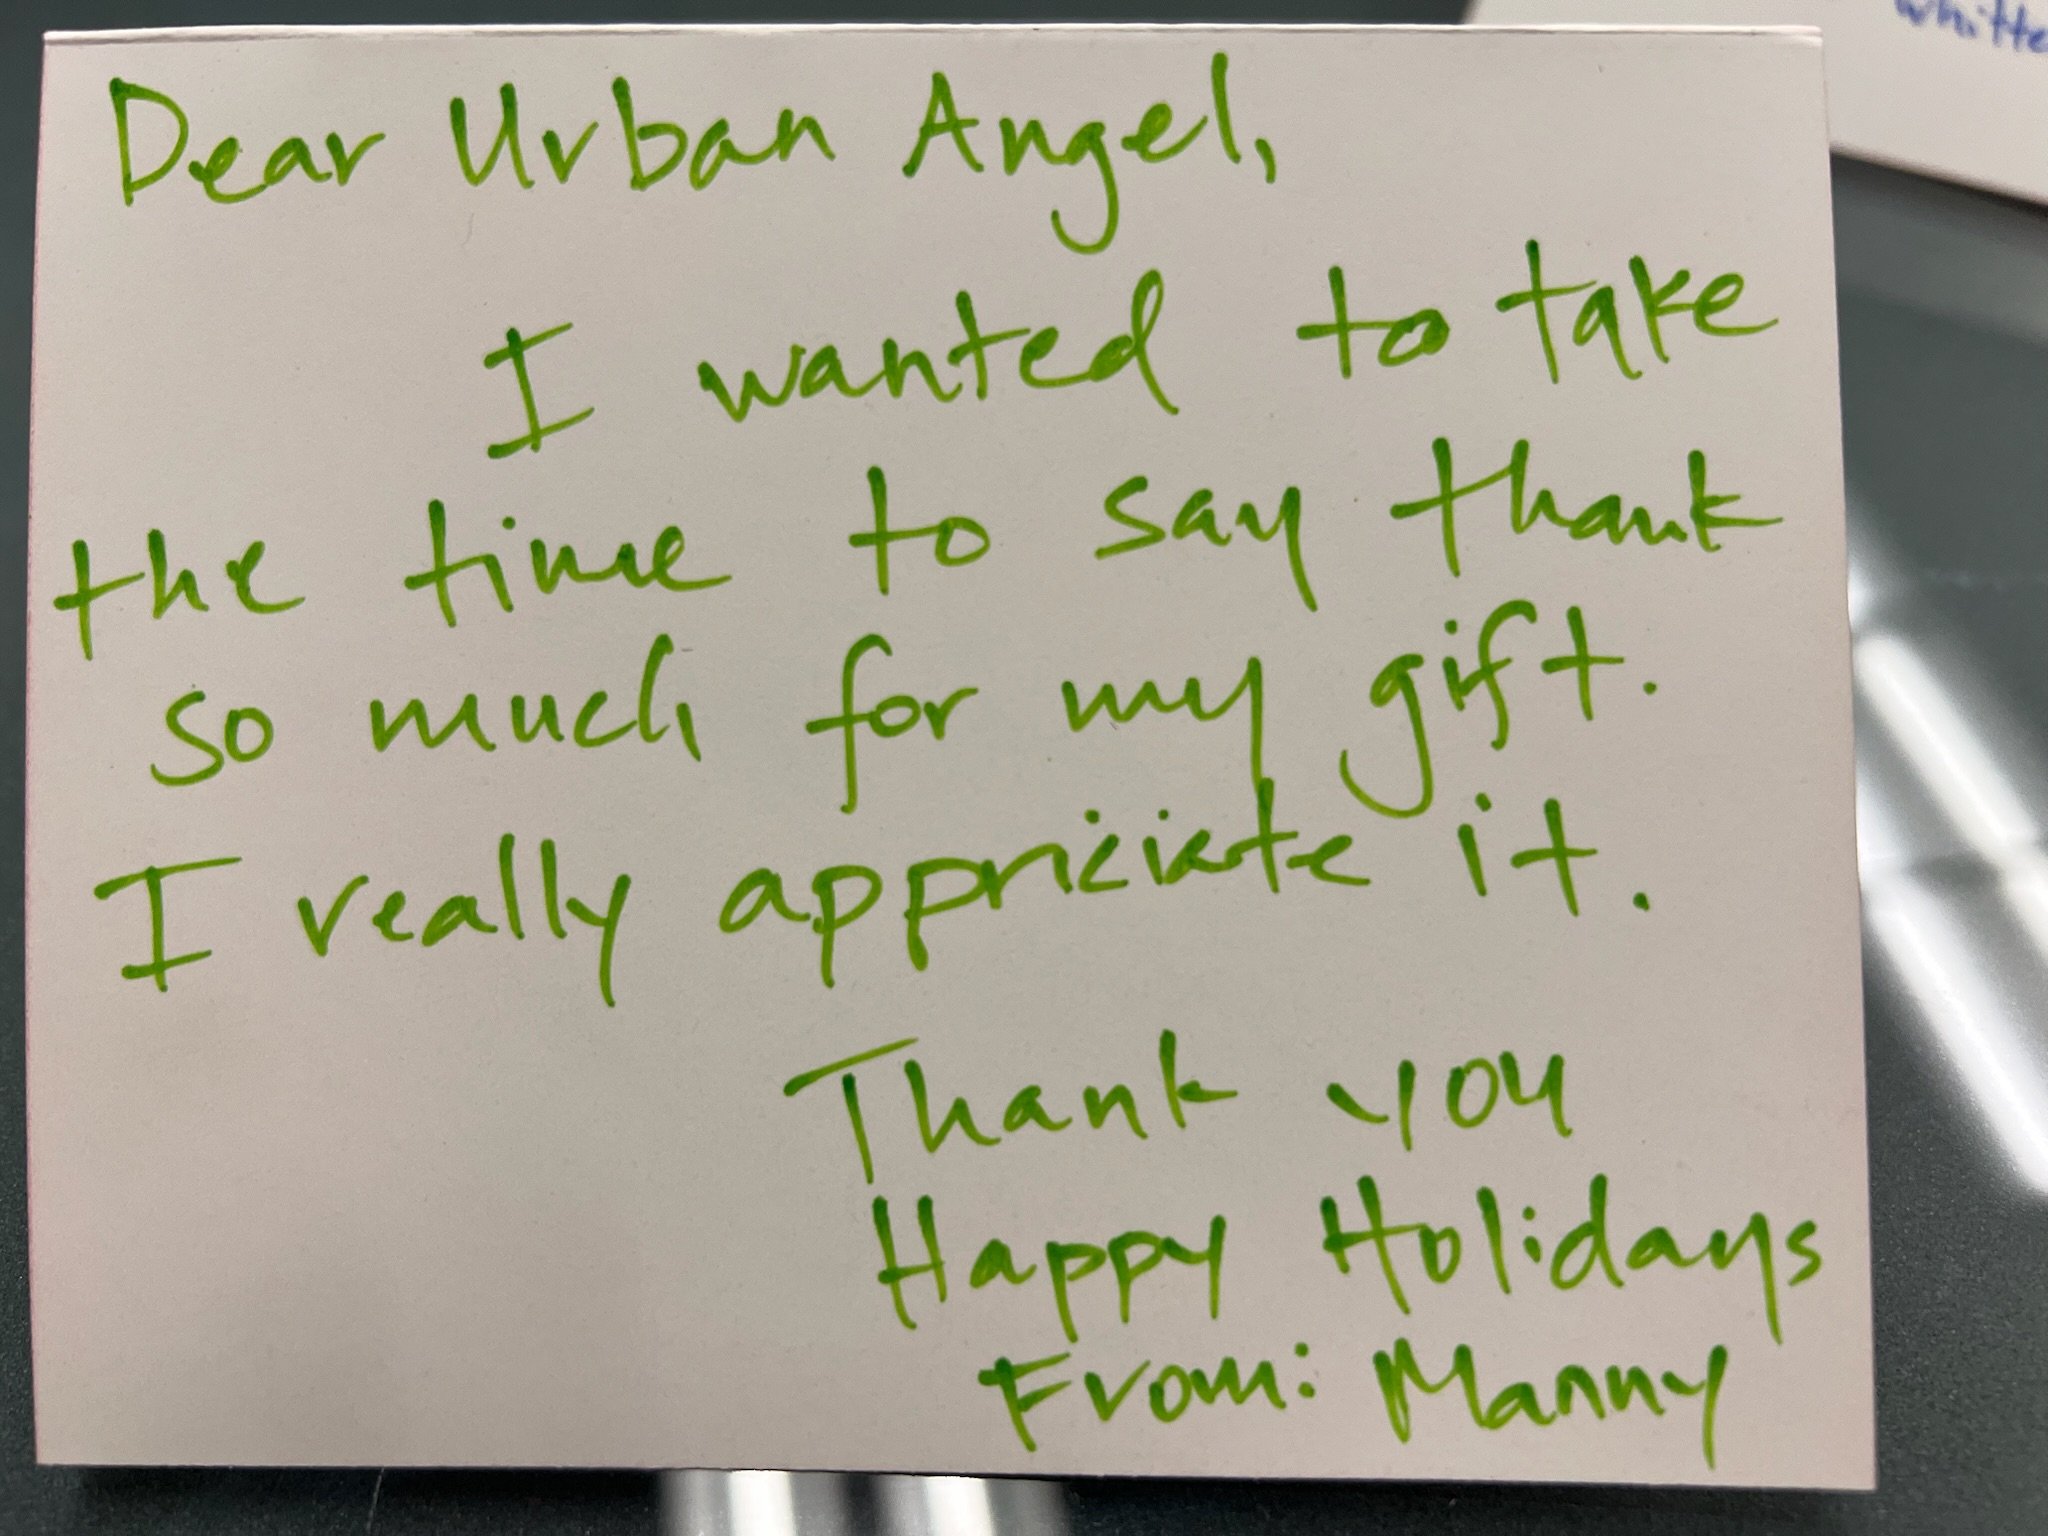 Dear Urban Angel,
I wanted to take
the time to say thank
so much for my gift.
I really appriciate it.
Thank you
Happy Holidays
From: Manny